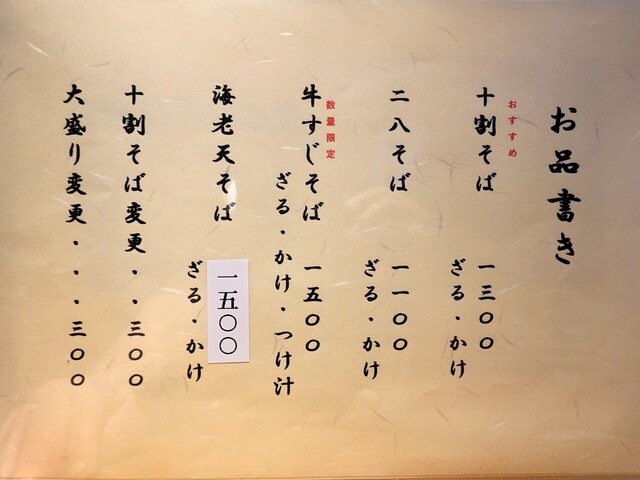 お品書き
おすすめ
十割そば 一三〇〇
ざる・かけ
二八そば 一一〇〇
ざる・かけ
数量限定
牛すじそば 一五〇〇
ざる・かけ・つけ汁
海老天そば 一五〇〇
ざる・かけ
十割そば変更・・三〇〇
大盛り変更・・・三〇〇